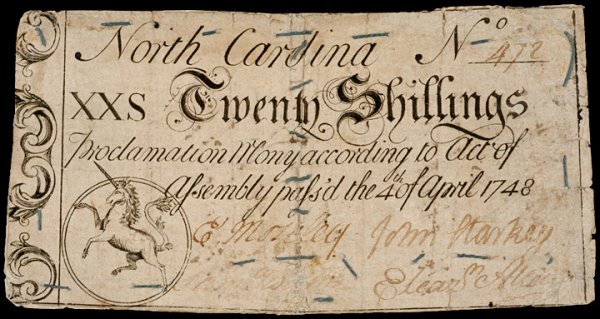 North Carolina No 472
XXS Twenty Shillings
Proclamation Mony according to Act of
Assembly pass'd the 4th of April 1748
E Moseley John Starkey
Eleazr Allen